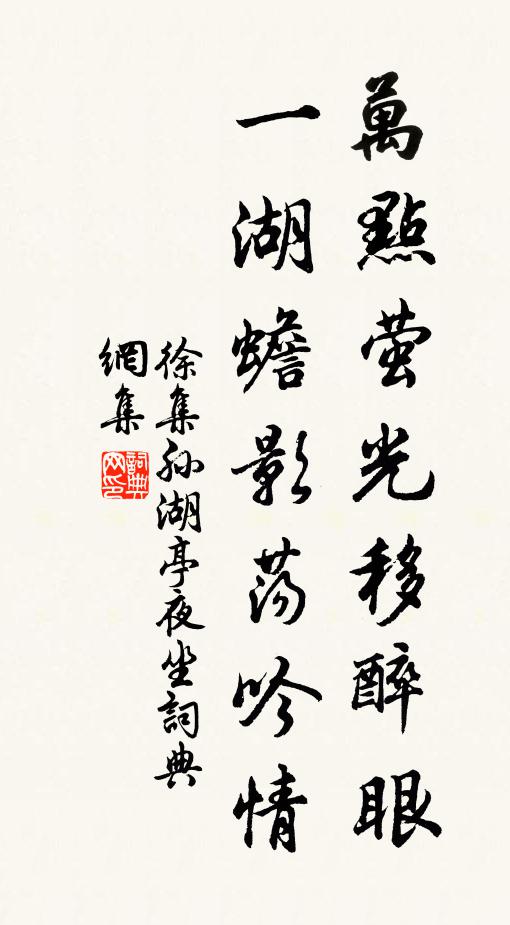 萬點萤光移醉眼
一湖蟾影荡吟情
徐集孙湖亭夜坐詞典
網集
詞典
网印